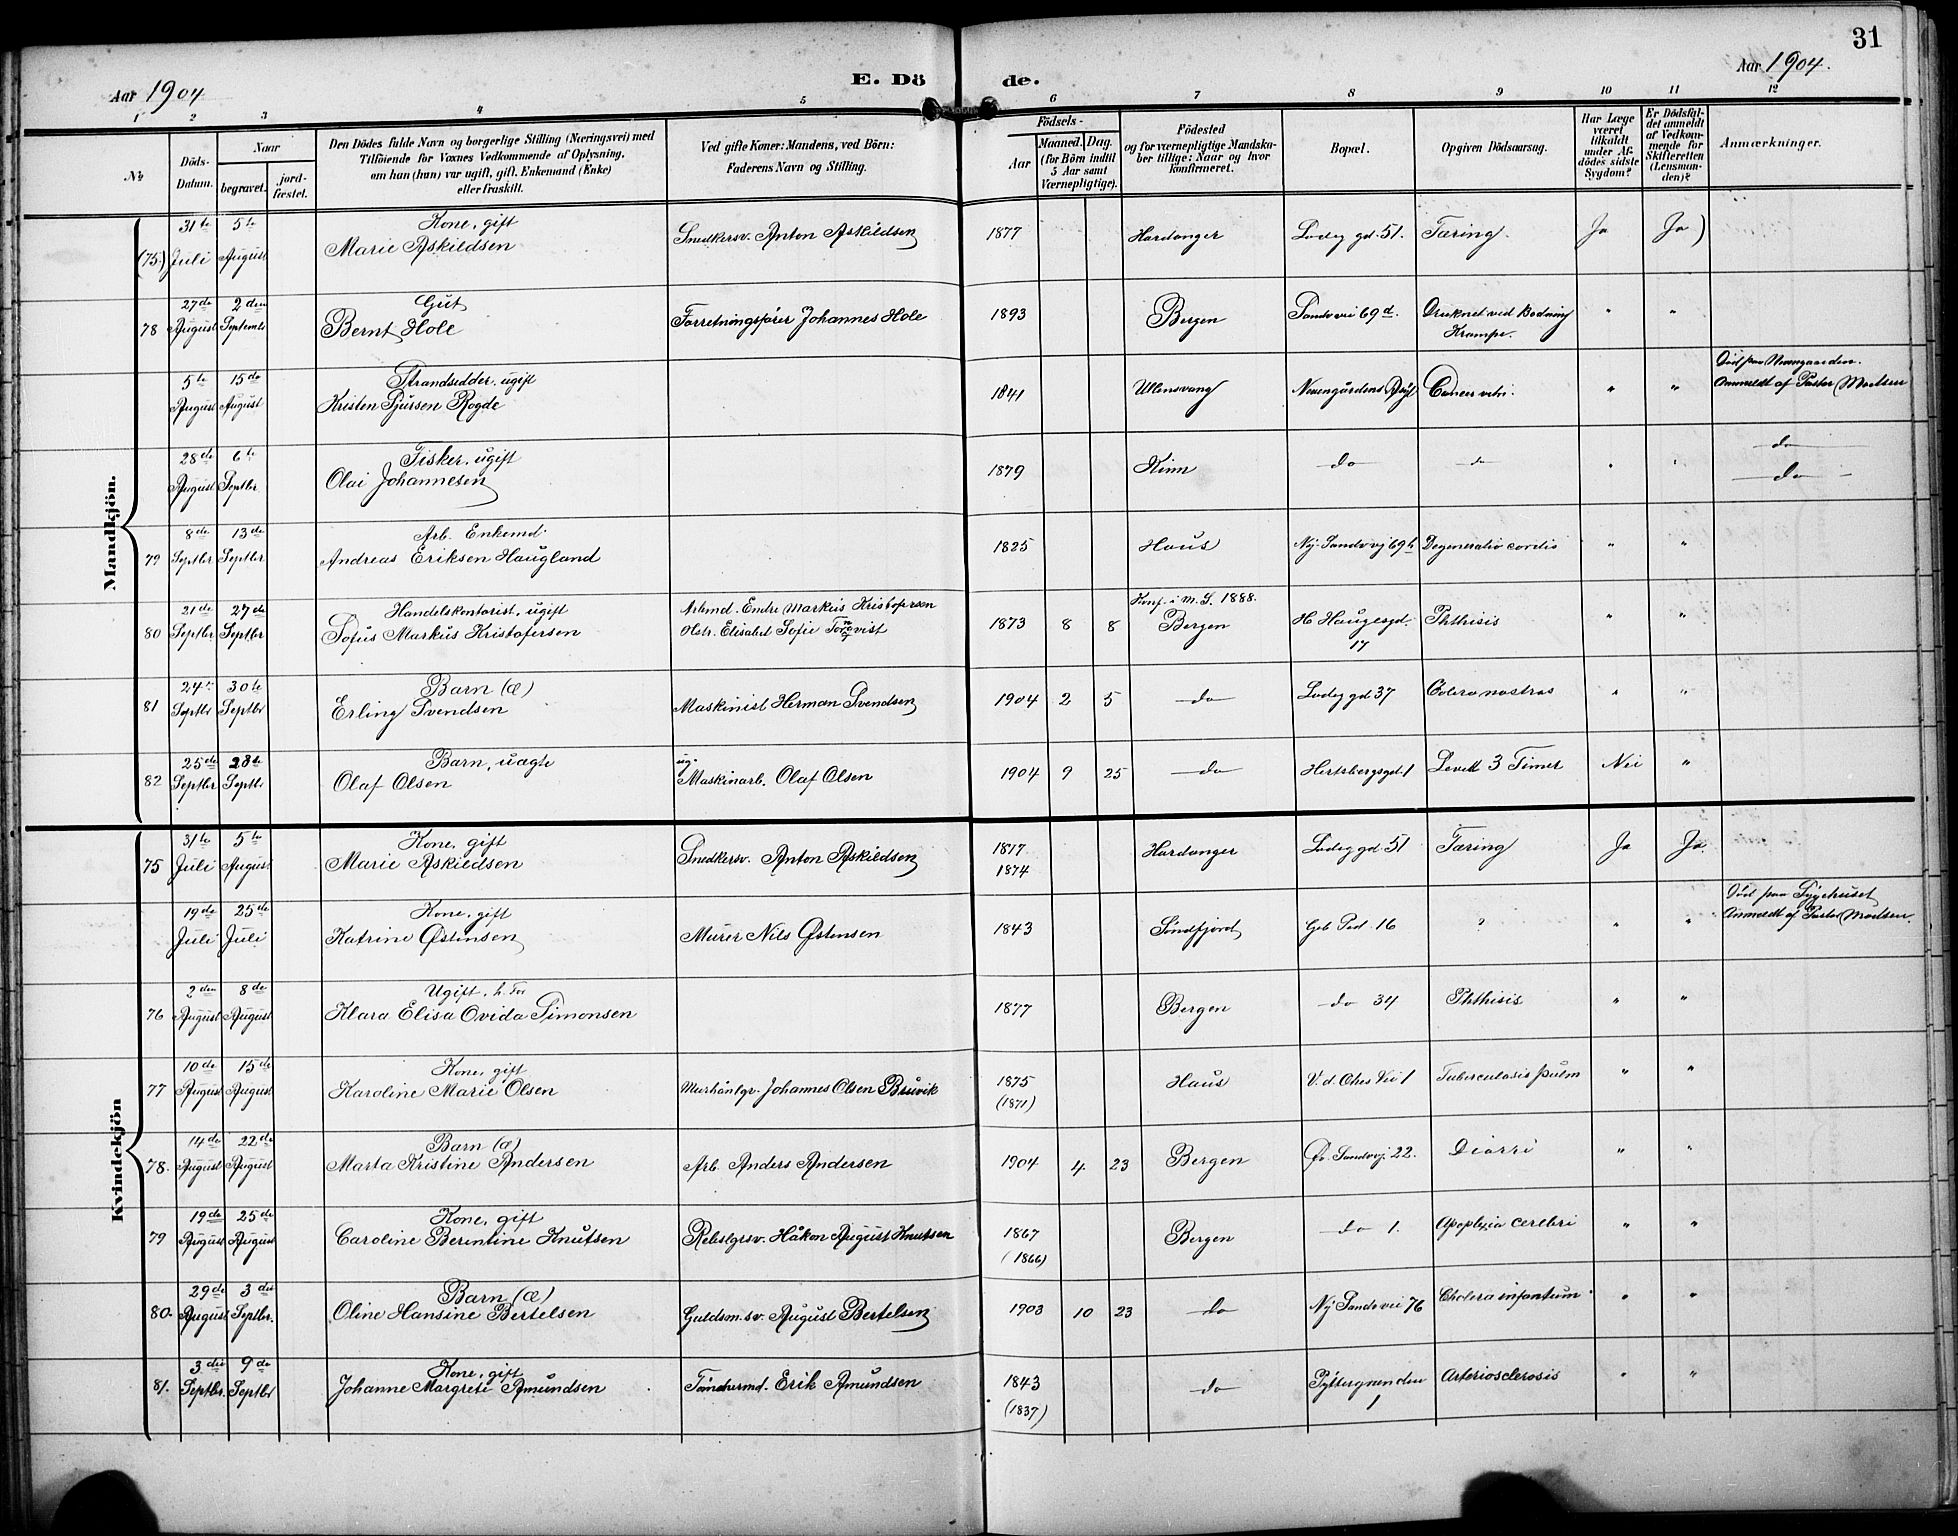 31
Aar 1904
E. Döde.
Aar 1904.
1 2 3 4 5 6 7 8 9 10 11 12
No
Döds-Datum.
Naar
begravet.
jord-fæstet.
Den Dödes fulde Navn og borgerlige Stilling (Næringsvei) med
Tilföiende for Voxnes Vedkommende af Oplysning,
om han (hun) var ugift, gift, Enkemand (Enke)
eller fraskilt.
Ved gifte Koner: Mandens, ved Börn:
Faderens Navn og Stilling.
Födsels-
Aar
Maaned. Dag.
(for Börn indtil
5 Aar samt
Værnepligtige).
Födested
og for værnepligtige Mandska-
ber tillige: Naar og hvor
konfirmeret.
Bopæl.
Opgiven Dödsaarsag.
Har Læge
været
tilkaldt
under Af-
dödes sidste
Sygdom?
Er Dödsfal-
det anmeldt
af Vedkom-
mende for
Skifteretten
(Lensman-
den)?
Anmærkninger.
Mandkjön.
(75.) 31te Juli 5te August Kone, gift
Marie Askildsen Snedkersv. Anton Askildsen 1877 Hardanger Ladeg gd. 51. Tæring. Ja Ja)
78 27de August 2den Septembr Gut
Bernt Hole Forretningsfører Johannes Hole 1893 Bergen Sandvei 69d. Druknet ved Badning
Krampe. " "
5te August 15de August Strandsidder, ugift
Kristen Sjursen Rogde 1841 Ullensvang Neuengårdens Asyl " "
Anmeldt af Pastor
28de August 6te Septbr. Fisker, ugift
Olai Johannesen 1879 Kinn do do " " do
do
79 8de Septbr 13de Septbr Arb. Enkemd.
Andreas Eriksen Haugland 1825 Haus Ny-Sandvvj 69b Degeneratio cordis " "
80 21de Septbr 27de Septbr Handelskontorist, ugift
Sofus Markus Kristofersen Arbmd. Endre Markus Kristofersen
Hstr. Elisabet Sofie 1873 8 8 Konf. i M. S. 1888.
Bergen H Haugesgd.
17 Phthisis " "
81 24 Septbr 30te Septbr Barn (æ)
Erling Svendsen Maskinist Herman Svendsen 1904 2 5 do Ladeg gd 37 Colera nostras " "
82 25de Septbr 28de Septbr Barn, uægte
Olaf Olsen ug.
Maskinarb. Olaf Olsen 1904 9 25 do Hertsbergsgd. 1 Levet 3 Timer Nei "
Kvindekjön
75 31te Juli 5te August Kone, gift
Marie Askildsen Snedkersv. Anton Askildsen 1877
1874 Hardanger Ladeg gd 51 Tæring Ja Ja.
19de Juli 25de Juli Kone, gift
Katrine Østensen Murer Nils Østensen 1843 Söndfjord Geb Pad 16 ? " " Död paa Sygehuset
Anmeldt af Pastor
76 2den August 8de August Ugift, h. for
Klara Elisa Ovida Simonsen 1877 Bergen do 34 Phthisis " "
77 10de August 15de August Kone, gift
Karoline Marie Olsen Murhåntlgr. Johannes Olsen Bruvik 1875
(1871) Haus Tuberculosis pulm " "
78. 14de August 22de August Barn (æ)
Marta Kristine Andersen Arb. Anders Andersen 1904 4 23 Bergen Øv. Sandvj 22. Diarré " "
79 19de August 25de August Kone, gift
Caroline Berentine Knutsen Rebslgrsv. Håkon August Knutsen 1867
(1866) Bergen do 1. Apoplexia cerebri " "
80. 29de August 3die Septbr. Barn (æ)
Oline Hansine Bertelsen Guldsm.sv. August Bertelsen 1903 10 23 do Ny Sandvei 76 Cholera infantum " "
81. 3die Septbr. 9de Septbr Kone, gift
Johanne Margrete Amundsen Töndermd. Erik Amundsen 1843
(1837) do Pyttergrænden
1 Arteriosclerosis " "